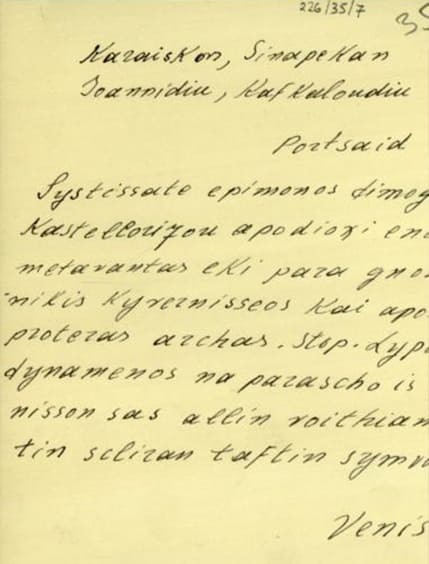 226/35/7
Karaiskon, Sinapekan
Ioannidiu, Kafkaloudiu
Portsaid
Systissate epimonos dimog
Kastellorizou apodioxi en
metavantas eki para gno
nikis Kyverniseos kai apo
proteras archas. Stop. Lyp
dynamenos na parascho is
nisson sas allin voithian
tin scliran taftin symv
Venis